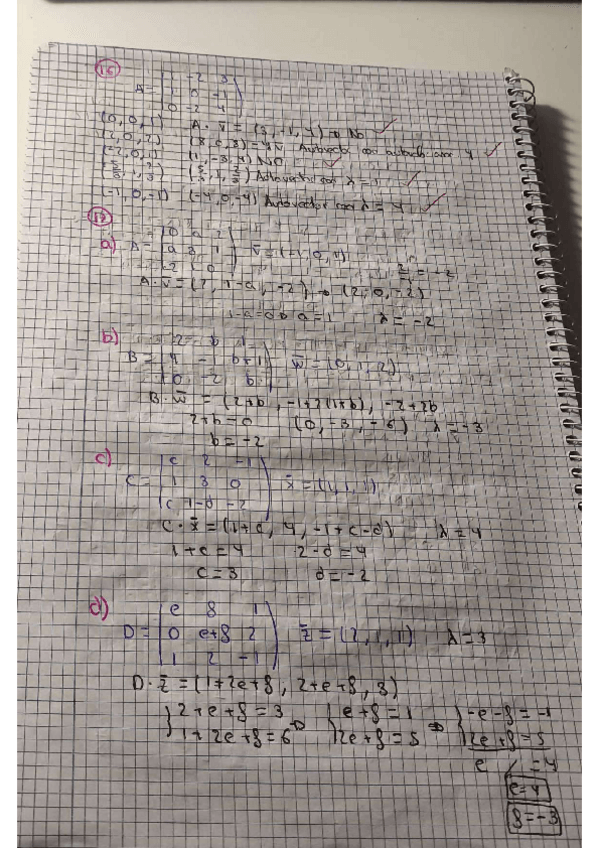 16
A = 1 -2 3
1 0 -1
0 -2 4
(0, 0, 1) A · v̄ = (3, -1, 4) → No ✓
(2, 0, 2) (8, 0, 8) = 4v̄ Autovector con autovalor 4 ✓
(1, -3, 4) NO ✓
Autovector con λ = 1 ✓
(-1, 0, -1) (-4, 0, -4) Autovector con λ = 4 ✓
17
a) A = 0 a 2
a 3 1
-2 1 0
v̄ = (-1, 0, 1)
A · v̄ = (2, 1-a, -2) → (2, 0, -2)
1-a = 0 → a = 1 λ = -2
b) B = 2 b 1
4 -1 b+1
0 -2 b
w̄ = (0, 1, 2)
B · w̄ = (2+b, -1+2(1+b), -2+2b)
2+b = 0 (0, -3, -6) λ = -3
b = -2
c) C = c 2 -1
1 3 0
c 1-d -2
x̄ = (1, 1, 1)
C · x̄ = (1+c, 4, -1+c-d) λ = 4
1+c = 4 2-d = 4
c = 3 d = -2
d) D = e 8 1
0 e+8 2
1 2 -1
z̄ = (2, 1, 1) λ = 3
D · z̄ = (1+2e+8, 2+e+8, 3)
2+e+8 = 3 e+8 = 1 -e-8 = -1
1+2e+8 = 6 → 2e+8 = 5 → 2e+8 = 5
e / = 4
e = 4
8 = -3